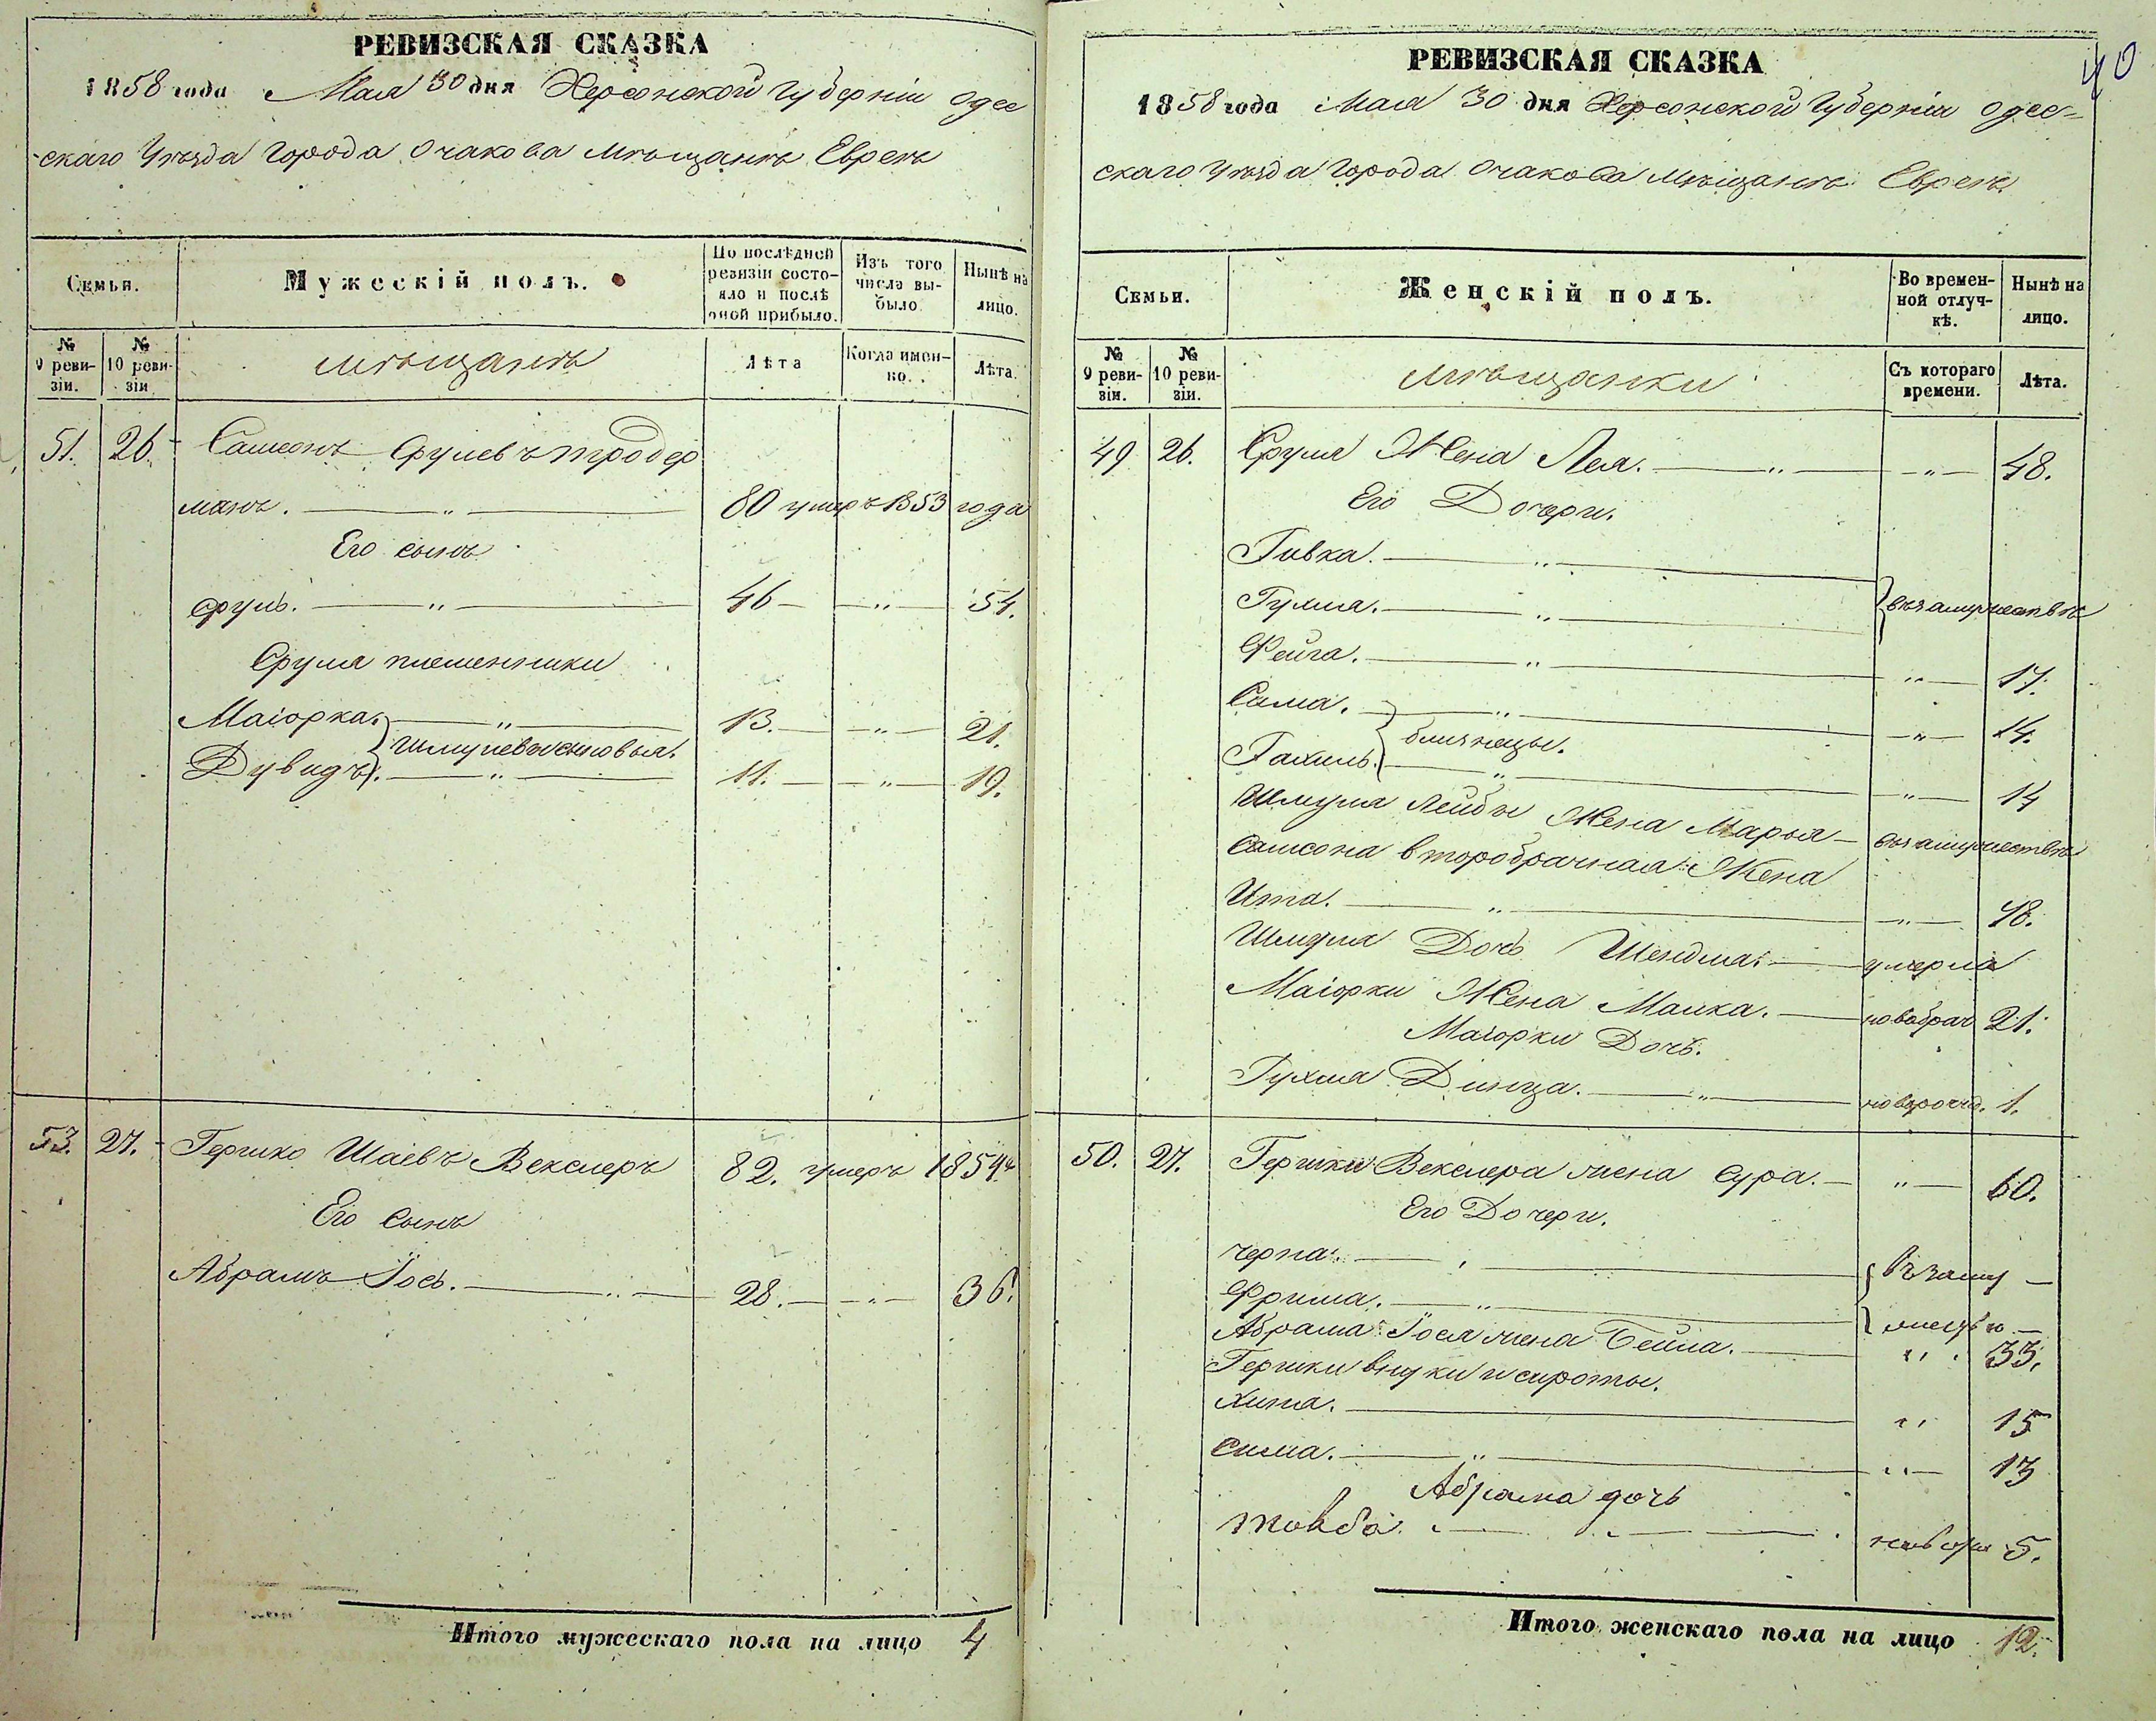 РЕВИЗСКАЯ СКАЗКА
1858 года Мая 30 дня Херсонской Губерніи Одес
скаго Уѣзда Города Очакова Мѣщанъ Евреевъ
Семьи.
Мужескій полъ.
По послѣдней ревизіи состояло и послѣ оной прибыло.
Изъ того числа выбыло.
Нынѣ на лицо.
№ 9 ревизіи.
№ 10 ревизіи
мѣщанъ
Лѣта
Когда именно.
Лѣта.
51. 26. Самсонъ Срулевъ Тродер
манъ. — " — 80 умеръ 1853 года
Его сынъ
Сруль. — " — 46 — " — 54.
Сруля племенники
Маіорка. — " — 13. — " — 21.
Шмулевы сыновья.
Дувидъ. — " — 11. — " — 19.
53. 27. Гершко Шаевъ Векслеръ 82. умеръ 1854
Его сынъ
Абрамъ Іось. — " — 28. — " — 36.
Итого мужескаго пола на лицо 4
40
РЕВИЗСКАЯ СКАЗКА
1858 года Мая 30 дня Херсонской Губерніи Одес=
скаго Уѣзда Города Очакова Мѣщанъ Евреевъ
Семьи.
Женскій полъ.
Во временной отлучкѣ.
Нынѣ на лицо.
№ 9 ревизіи.
№ 10 ревизіи.
мѣщанки
Съ котораго времени.
Лѣта.
49 26. Сруля Жена Лея. — " — " — 48.
Его Дочери.
Ривка. — " —
въ замужествѣ
Рухля. — " —
Фейга. — " — " — 17.
Сима. — " — " — 14.
близнецы.
Рахиль. — " — " — 14
Шмуля Лейбы Жена Марья — въ замужествѣ
Самсона второбрачная Жена
Ита. — " — " — 48.
Шмуля Дочь Шендля. — умерла
Маіорки Жена Малка. — новобрач 21.
Маіорки Дочь.
Рухля Динца. — " — новорожд. 1.
50. 27. Гершки Векслера жена Сура. — " — 60.
Его Дочери.
Черна. —
въ заму —
Фрима. — " —
жествѣ —
Абрама Іося жена Бейла. — " 33.
Гершки внуки и сироты.
Хита. — " 15
Сима. — " — " — 13
Абрама дочь
Товба. — новорож 5.
Итого женскаго пола на лицо 12.